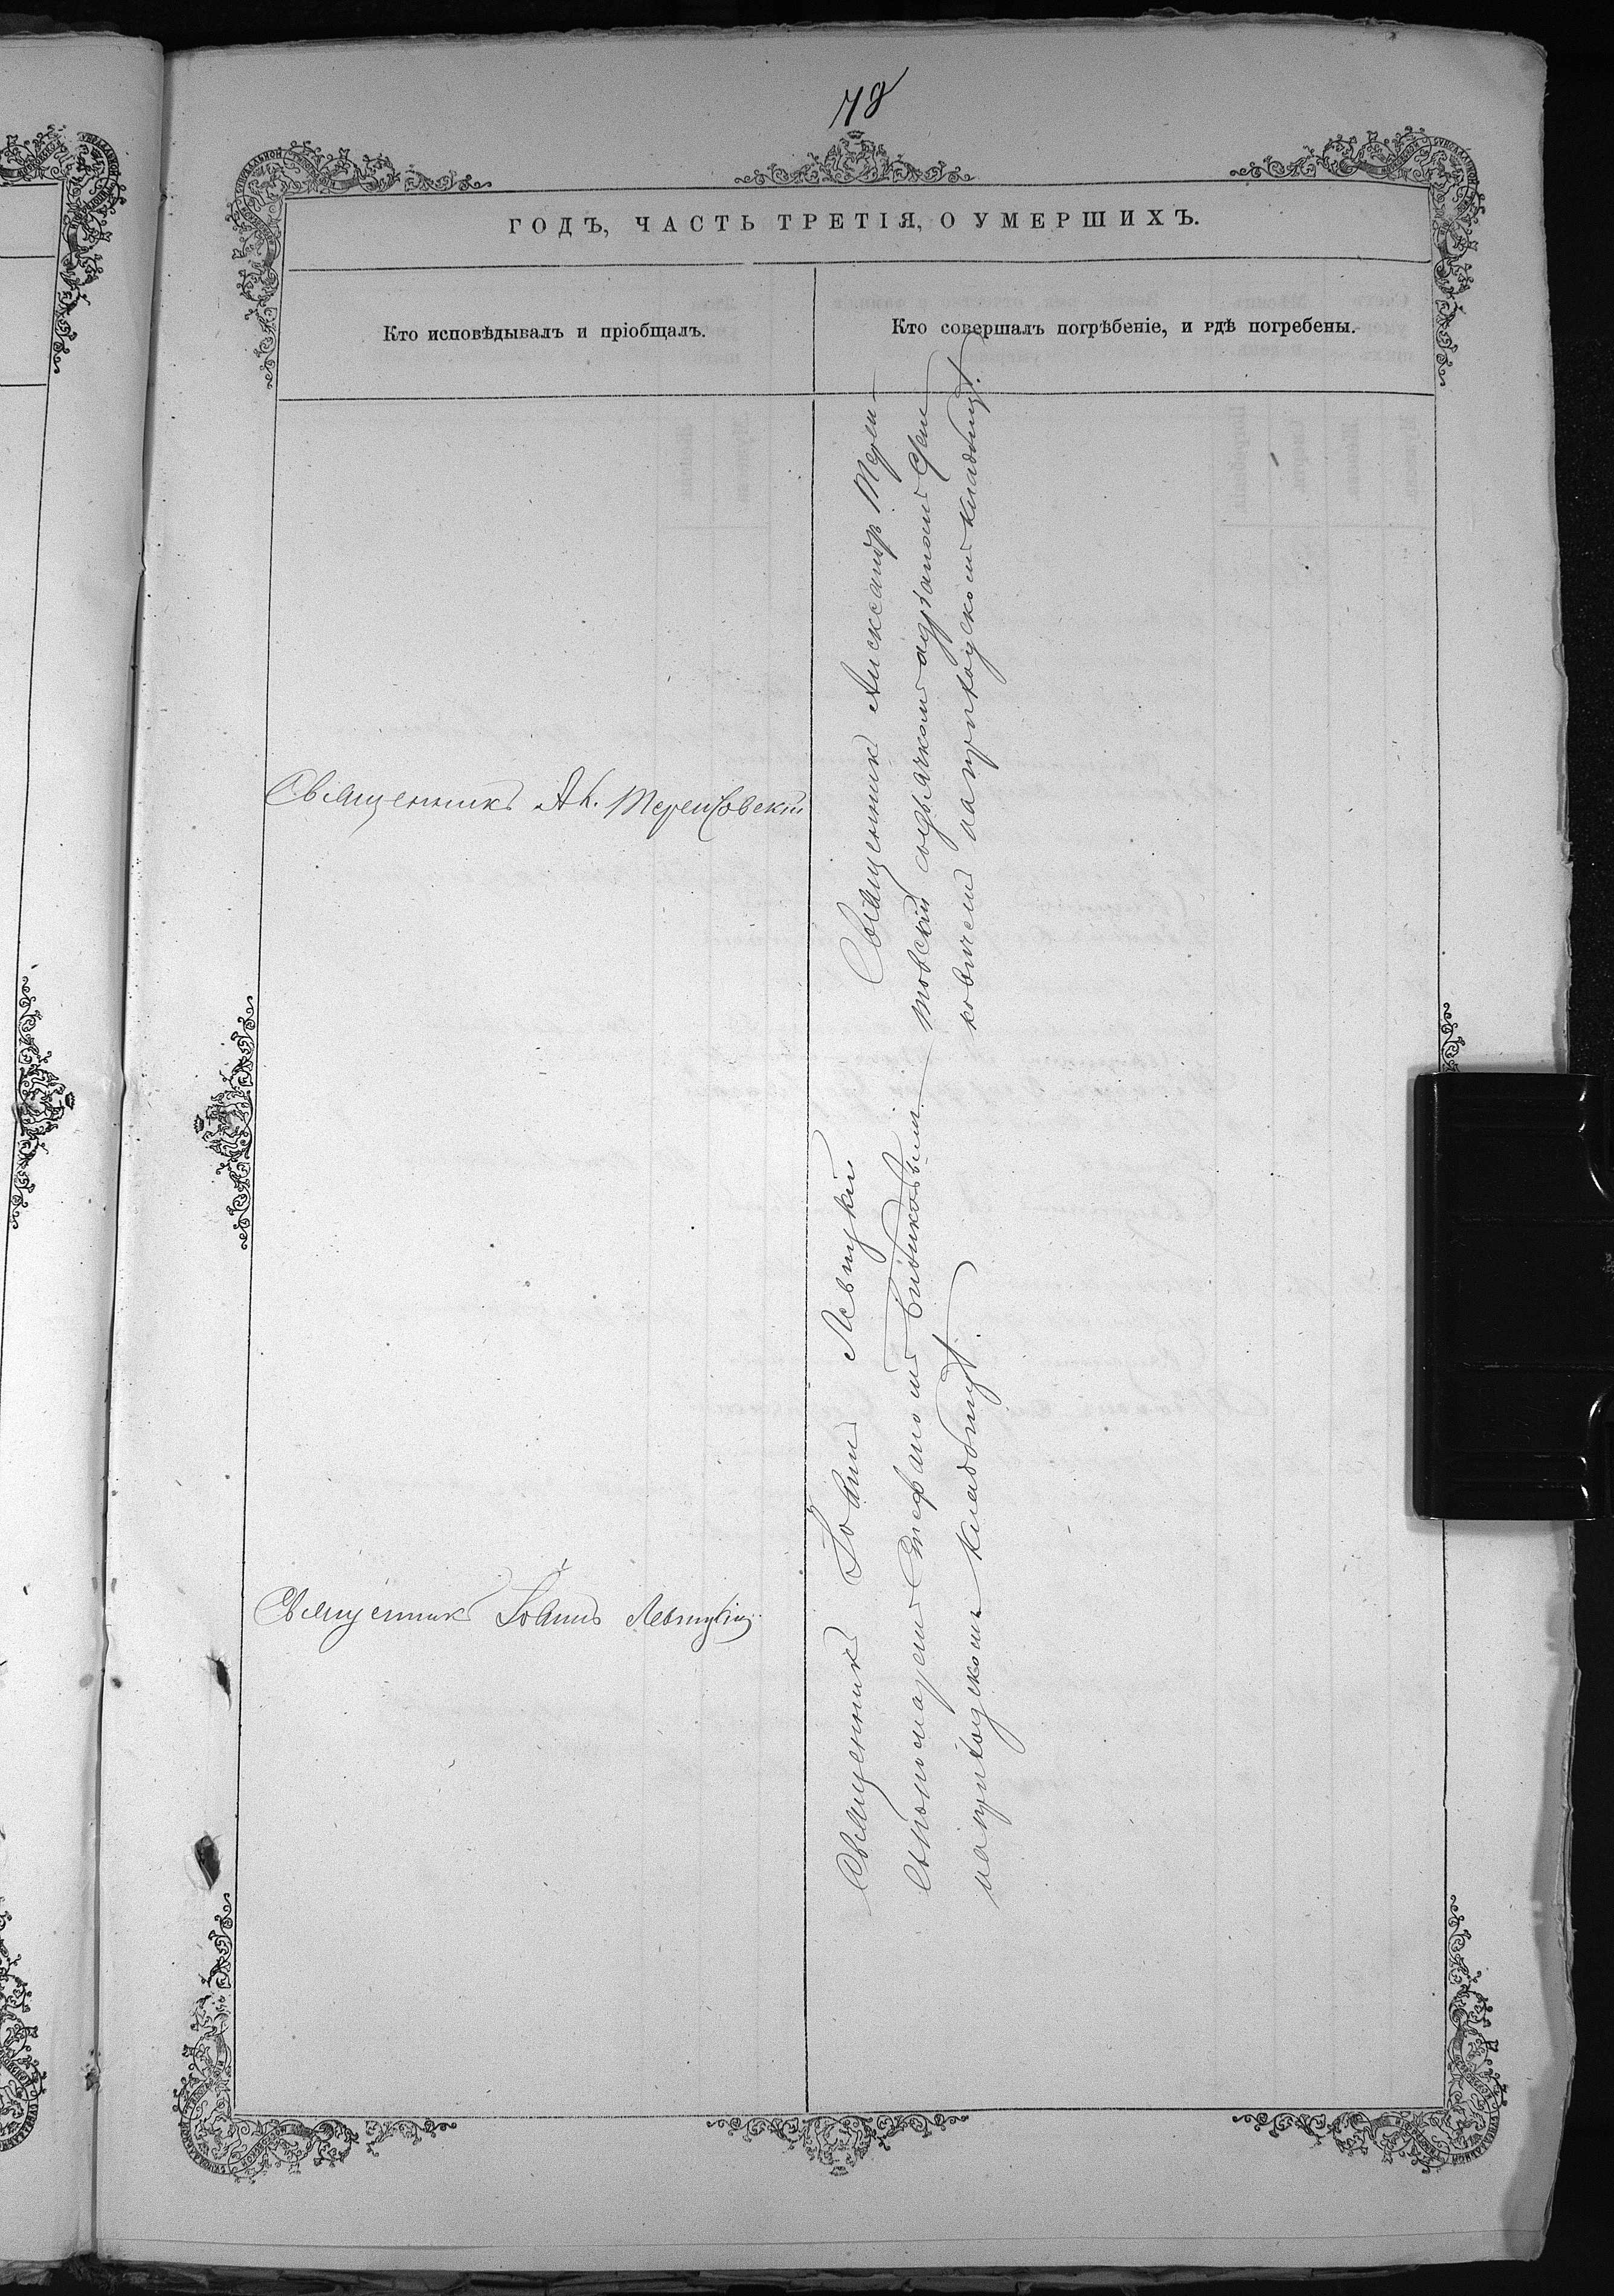 78
ГОДЪ, ЧАСТЬ ТРЕТІЯ, О УМЕРШИХЪ.
Кто исповѣдывалъ и пріобщалъ.
Кто совершалъ погребеніе, и гдѣ погребены.
Священникъ Ал. Терентовскій
Священник Александр Терен-
товскій с дьячком
ковичем на приходском кладбищѣ.
Священникъ Іоаннъ Левицкій
Священник Іоанн Левицкій
с пономарем Стефаном Бибиковым
на приходском кладбищѣ.